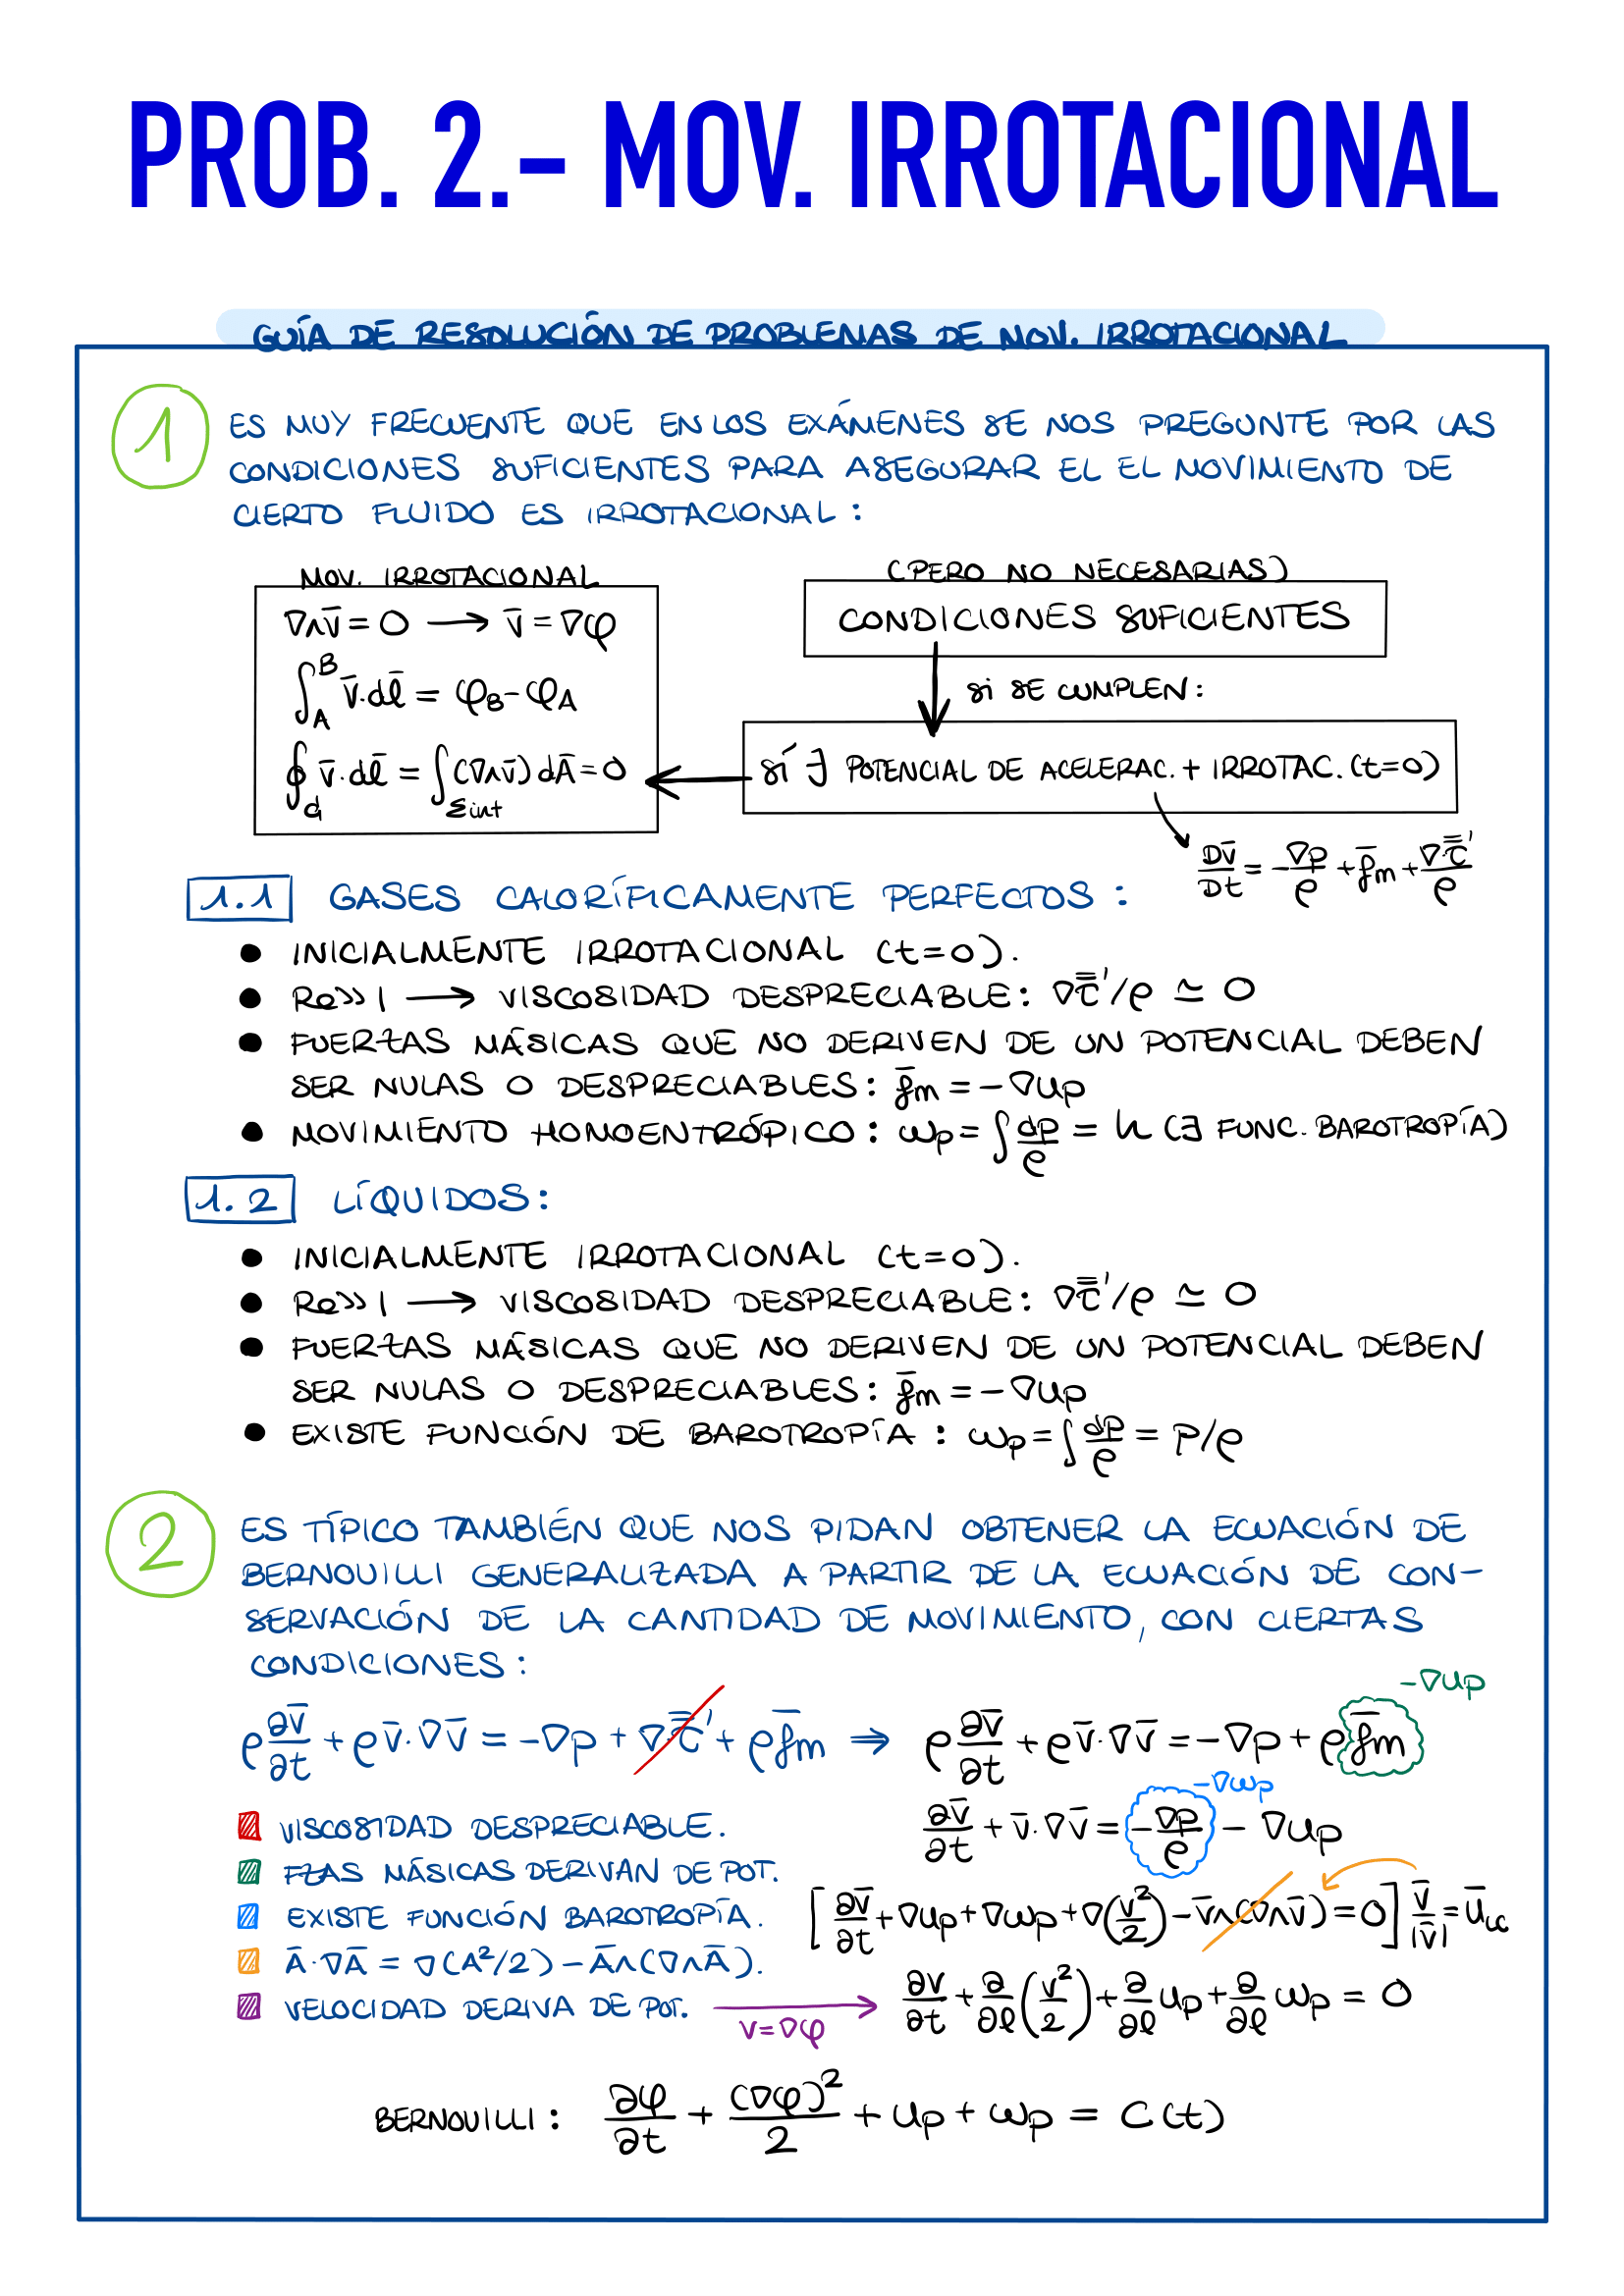 PROB. 2.- MOV. IRROTACIONAL
GUÍA DE RESOLUCIÓN DE PROBLEMAS DE MOV. IRROTACIONAL
1 ES MUY FRECUENTE QUE EN LOS EXÁMENES SE NOS PREGUNTE POR LAS
CONDICIONES SUFICIENTES PARA ASEGURAR EL EL MOVIMIENTO DE
CIERTO FLUIDO ES IRROTACIONAL:
MOV. IRROTACIONAL
∇∧v̄ = 0 → v̄ = ∇φ
∫_A^B v̄·dl̄ = φ_B - φ_A
∮_G v̄·dl̄ = ∫_Σint (∇∧v̄) dĀ = 0
(PERO NO NECESARIAS)
CONDICIONES SUFICIENTES
SI SE CUMPLEN:
SÍ ∃ POTENCIAL DE ACELERAC. + IRROTAC. (t=0)
Dv̄/Dt = -∇p/ρ + f̄m + ∇·τ̿'/ρ
1.1 GASES CALORÍFICAMENTE PERFECTOS:
● INICIALMENTE IRROTACIONAL (t=0).
● Re>>1 → VISCOSIDAD DESPRECIABLE: ∇τ̿'/ρ ≃ 0
● FUERZAS MÁSICAS QUE NO DERIVEN DE UN POTENCIAL DEBEN
SER NULAS O DESPRECIABLES: f̄m = -∇Up
● MOVIMIENTO HOMOENTRÓPICO: ωp = ∫dp/ρ = h (∃ FUNC. BAROTROPÍA)
1.2 LÍQUIDOS:
● INICIALMENTE IRROTACIONAL (t=0).
● Re>>1 → VISCOSIDAD DESPRECIABLE: ∇τ̿'/ρ ≃ 0
● FUERZAS MÁSICAS QUE NO DERIVEN DE UN POTENCIAL DEBEN
SER NULAS O DESPRECIABLES: f̄m = -∇Up
● EXISTE FUNCIÓN DE BAROTROPÍA: ωp = ∫dp/ρ = P/ρ
2 ES TÍPICO TAMBIÉN QUE NOS PIDAN OBTENER LA ECUACIÓN DE
BERNOUILLI GENERALIZADA A PARTIR DE LA ECUACIÓN DE CON-
SERVACIÓN DE LA CANTIDAD DE MOVIMIENTO, CON CIERTAS
CONDICIONES:
ρ ∂v̄/∂t + ρv̄·∇v̄ = -∇p + ∇·τ̿' + ρf̄m ⇒ ρ ∂v̄/∂t + ρv̄·∇v̄ = -∇p + ρf̄m
-∇Up
VISCOSIDAD DESPRECIABLE.
∂v̄/∂t + v̄·∇v̄ = -∇p/ρ - ∇Up
-∇ωp
FZAS MÁSICAS DERIVAN DE POT.
EXISTE FUNCIÓN BAROTROPÍA.
[∂v̄/∂t + ∇Up + ∇ωp + ∇(v²/2) - v̄∧(∇∧v̄) = 0] v̄/|v̄| = ūLC
Ā·∇Ā = ∇(A²/2) - Ā∧(∇∧Ā).
VELOCIDAD DERIVA DE POT.
v = ∇φ
∂v/∂t + ∂/∂l (v²/2) + ∂/∂l Up + ∂/∂l ωp = 0
BERNOUILLI: ∂φ/∂t + (∇φ)²/2 + Up + ωp = C(t)